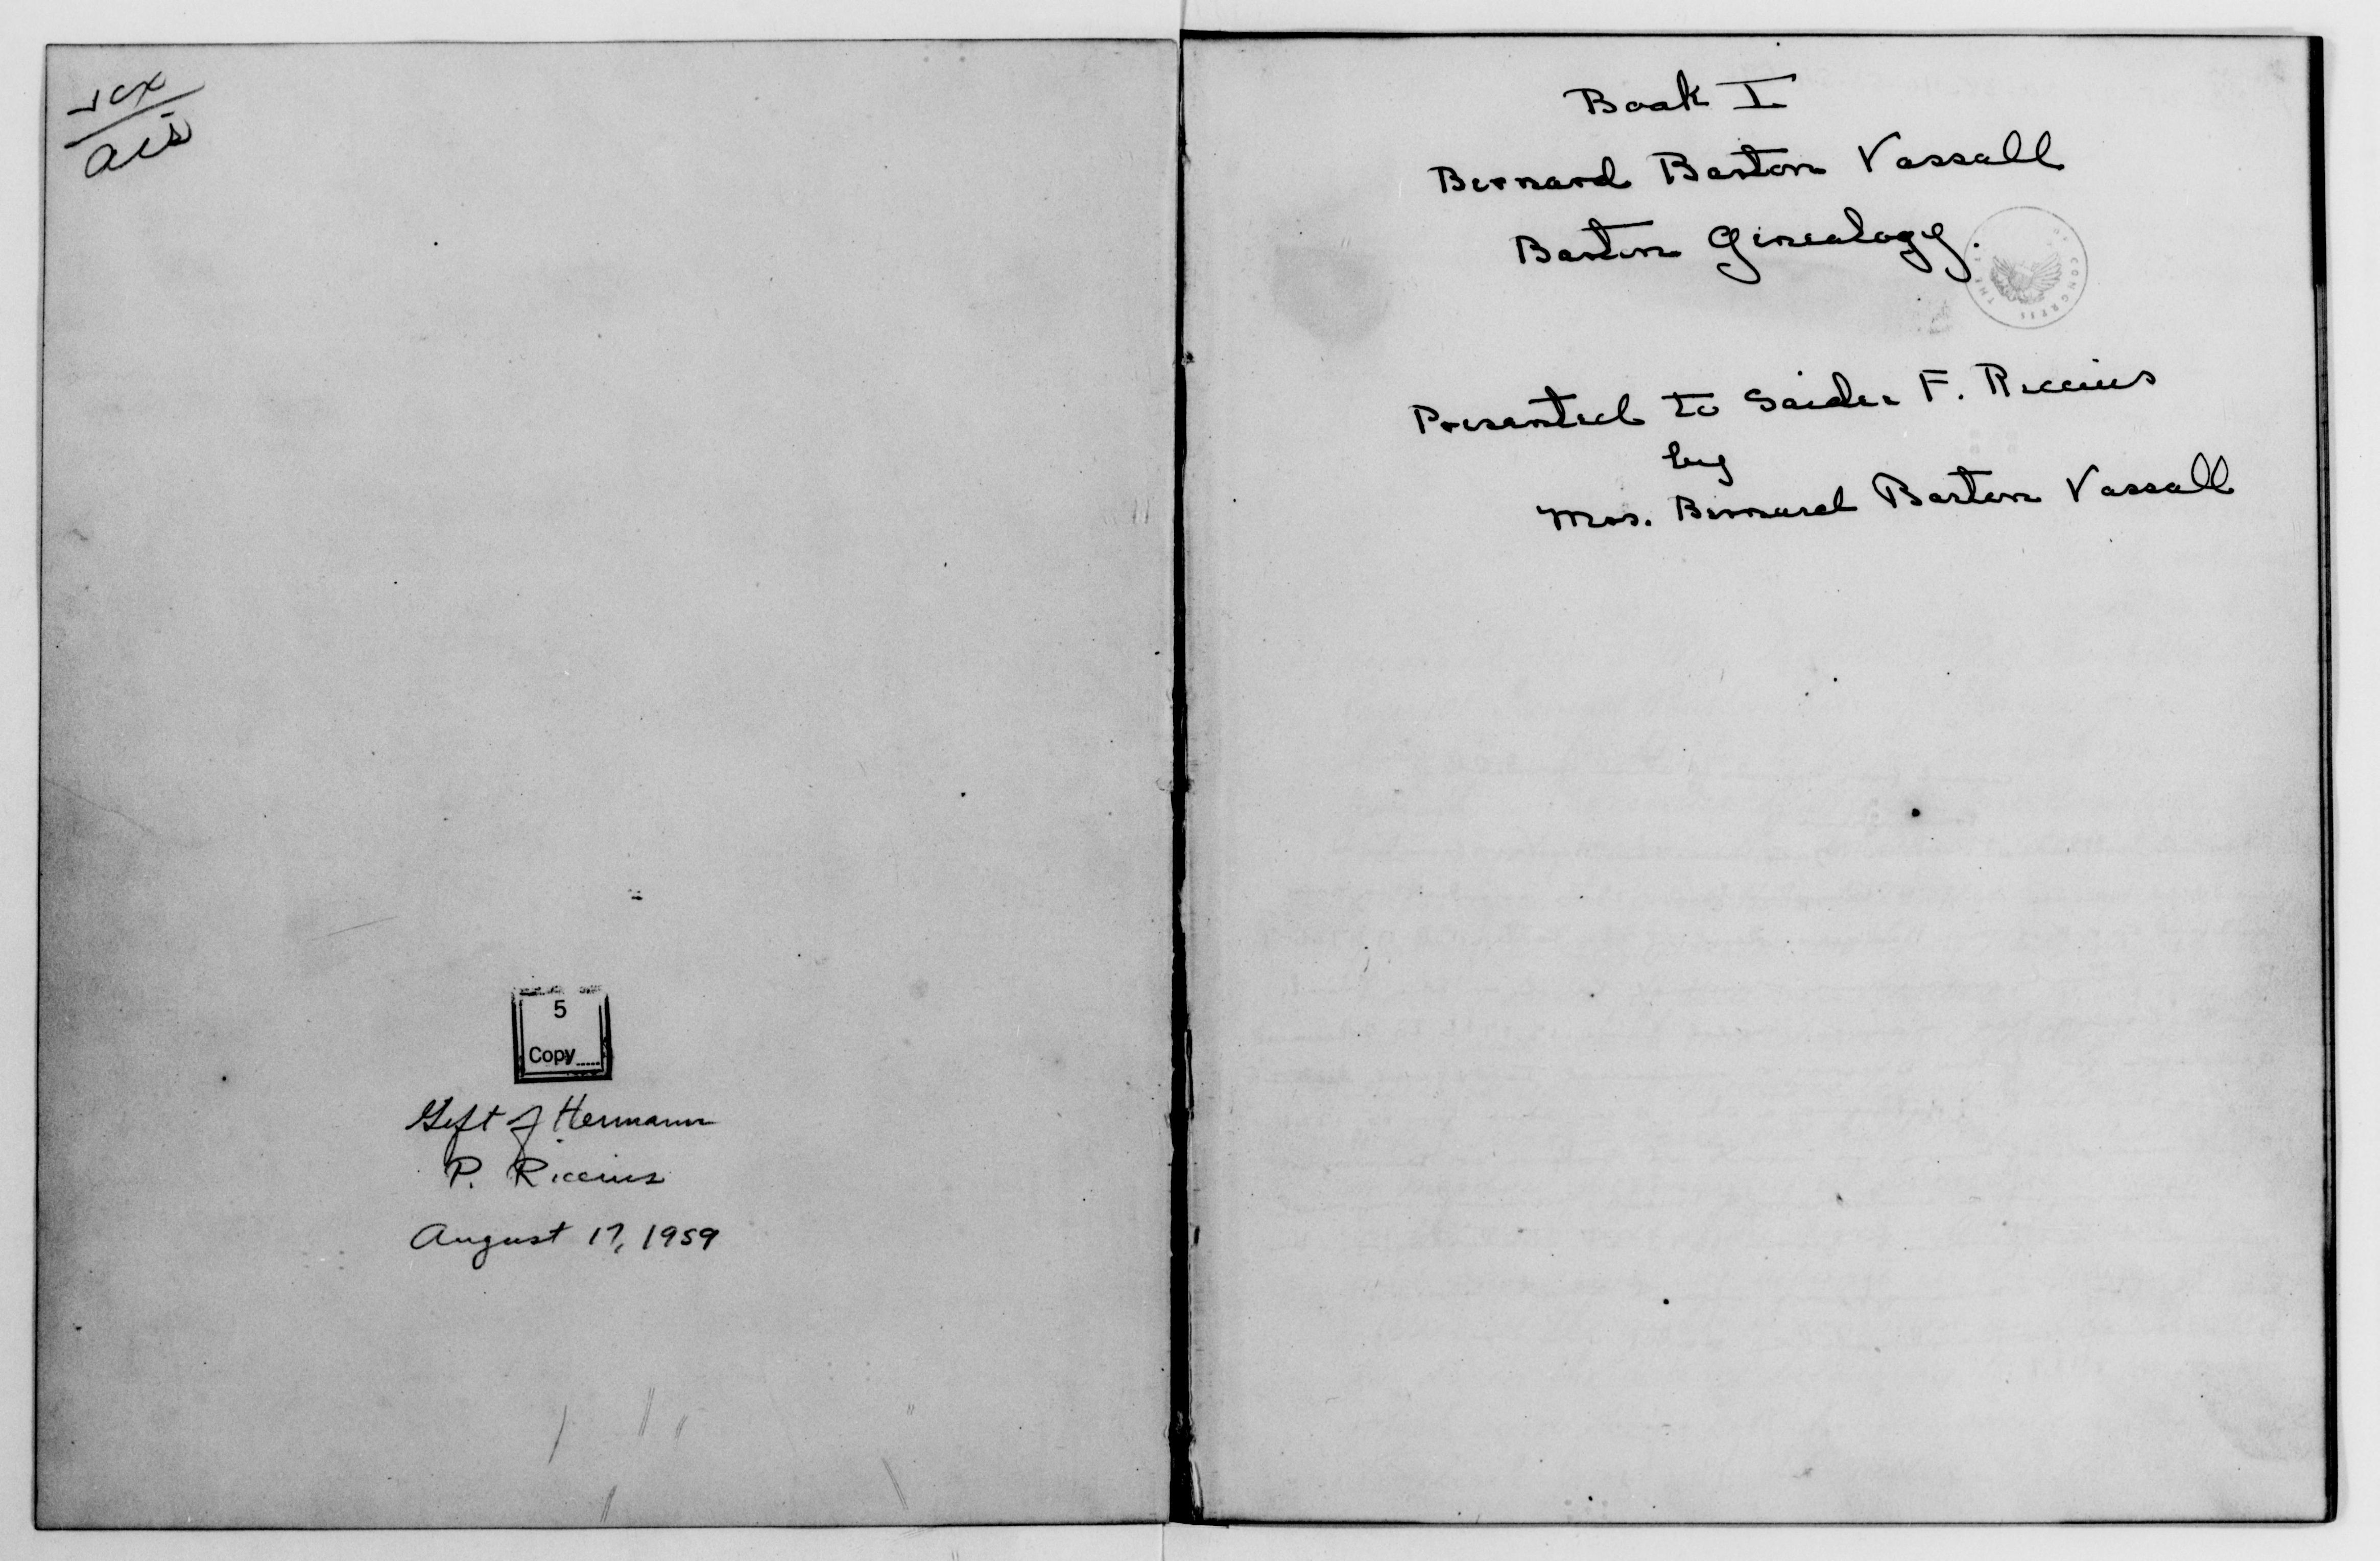 5
Copy
Gift of Hermann
P. Riccius
August 17, 1959
Book I
Bernard Barton Vassall
Barton Genealogy.
THE CONGRESS
Presented to Saidee F. Riccius
by
Mrs. Bernard Barton Vassall